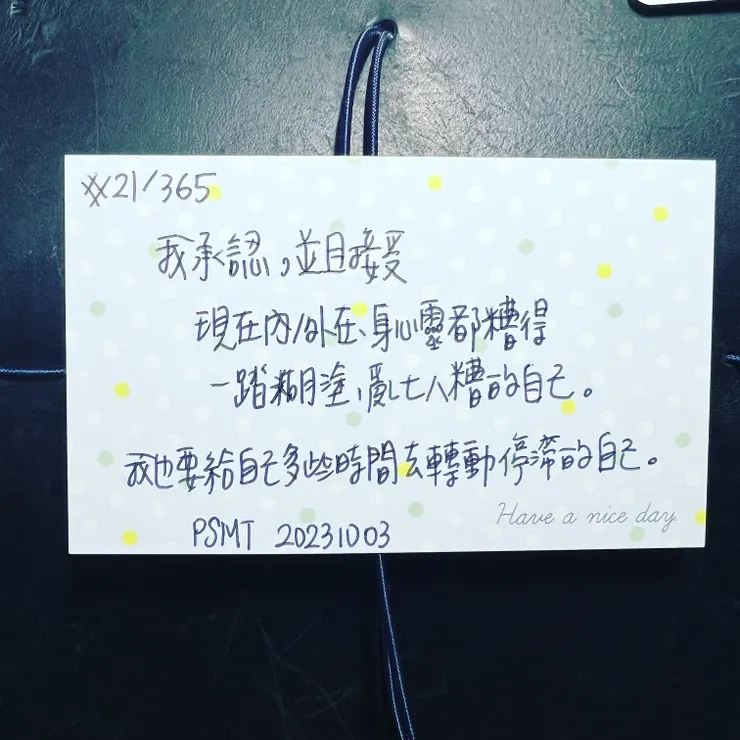 #21/365
我承認，並且接受
現在內/外在、身心靈都糟得
一蹋糊塗，亂七八糟的自己。
我也要給自己多些時間去轉動停滯的自己。
Have a nice day.
PSMT 20231003